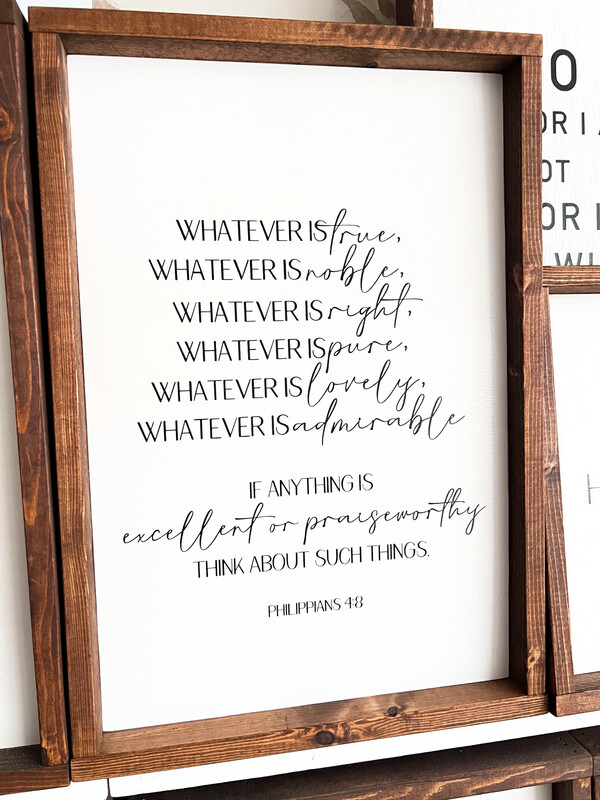 WHATEVER IS true,
WHATEVER IS noble,
WHATEVER IS right,
WHATEVER IS pure,
WHATEVER IS lovely,
WHATEVER IS admirable
IF ANYTHING IS
excellent or praiseworthy
THINK ABOUT SUCH THINGS.
PHILIPPIANS 4:8